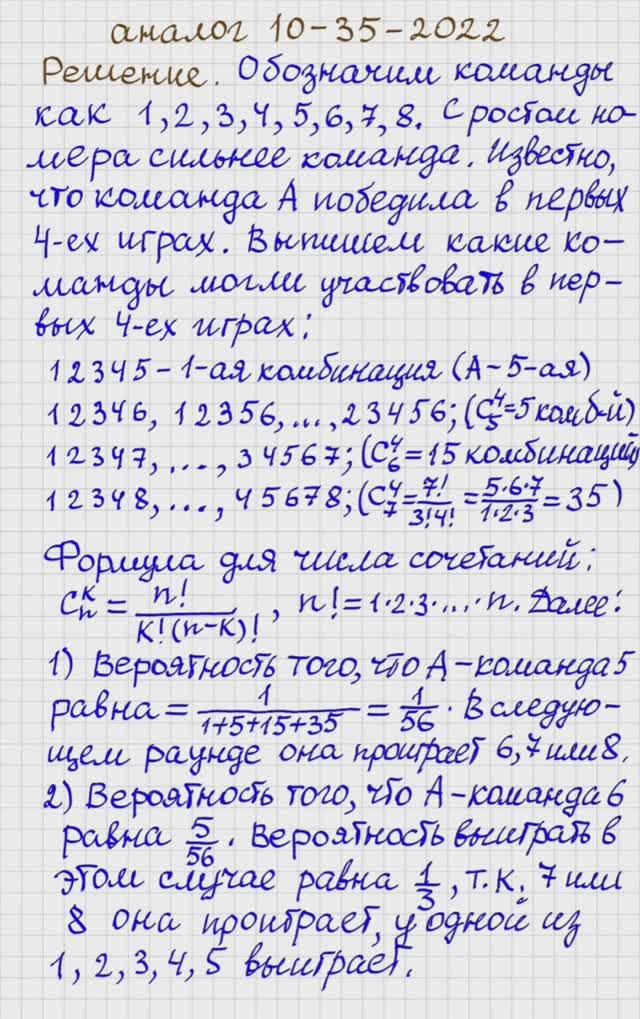 аналог 10-35-2022
Решение. Обозначим команды
как 1,2,3,4,5,6,7,8. С ростом но-
мера сильнее команда. Известно,
что команда А победила в первых
4-ех играх. Выпишем какие ко-
манды могли участвовать в пер-
вых 4-ех играх:
12345 - 1-ая комбинация (А - 5-ая)
12346, 12356, ..., 23456; (C₅⁴=5 комб-й)
12347, ..., 34567; (C₆⁴=15 комбинаций)
12348, ..., 45678; (C₇⁴=7!/(3!4!)=(5·6·7)/(1·2·3)=35)
Формула для числа сочетаний:
Cₙᵏ = n!/(k!(n-k)!), n!=1·2·3·...·n. Далее:
1) Вероятность того, что А-команда 5
равна = 1/(1+5+15+35) = 1/56. В следую-
щем раунде она проиграет 6,7 или 8.
2) Вероятность того, что А-команда 6
равна 5/56. Вероятность выиграть в
этом случае равна 1/3, т.к. 7 или
8 она проиграет, у одной из
1, 2, 3, 4, 5 выиграет.